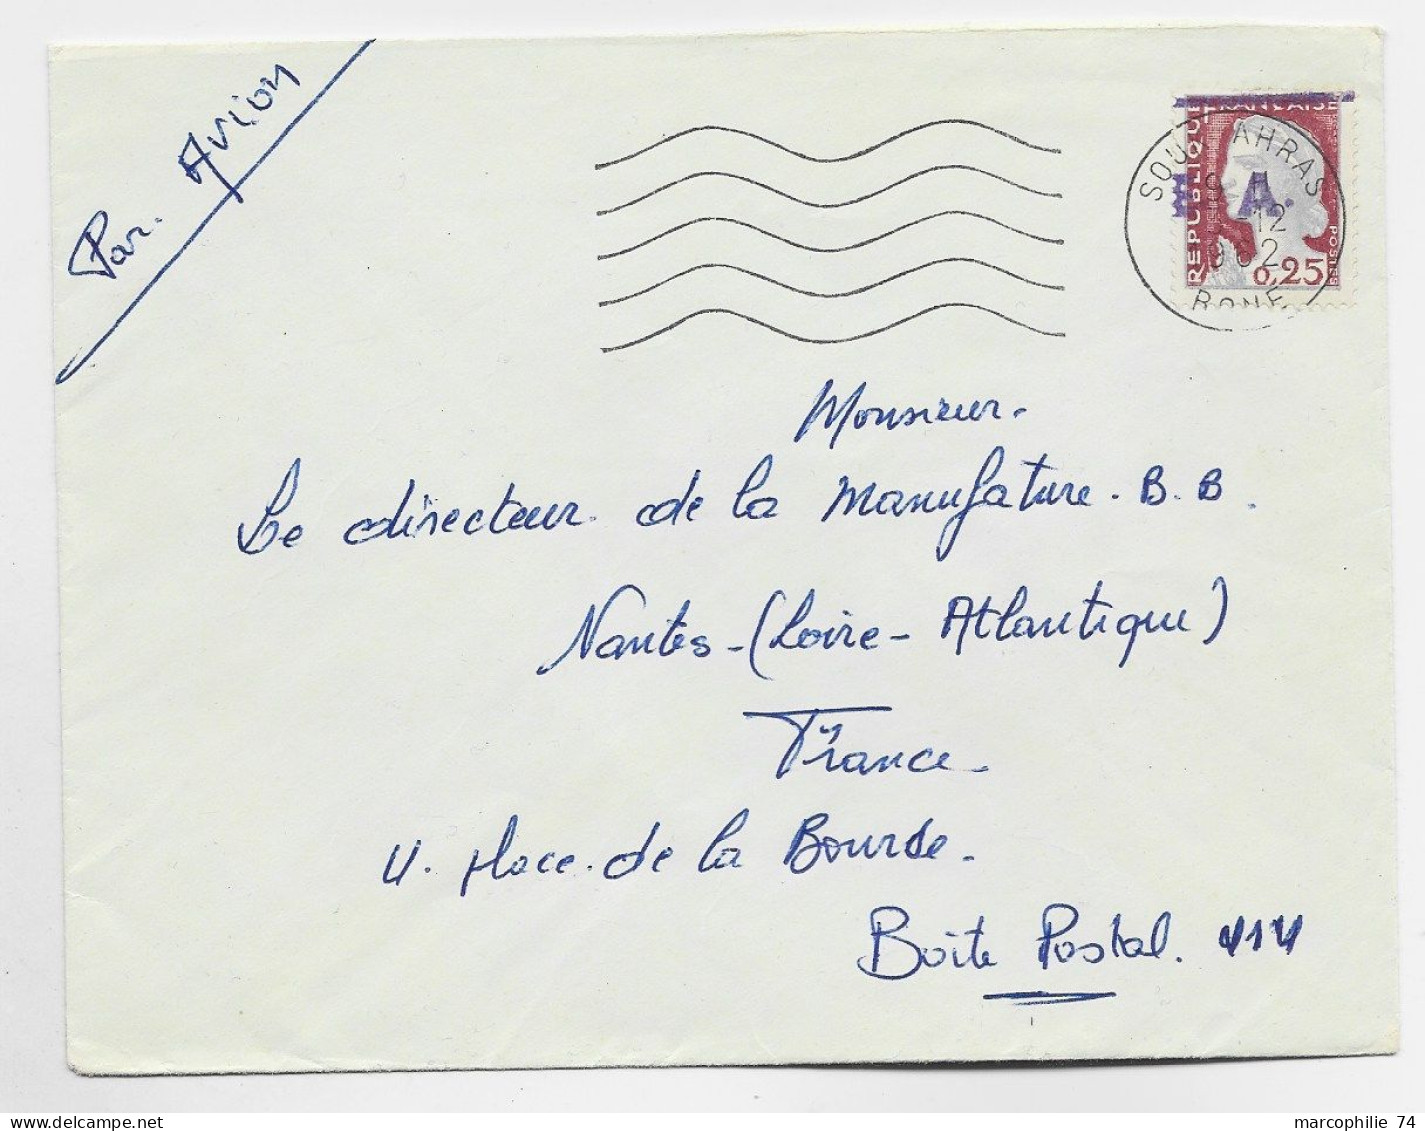 Par. Avion
REPUBLIQUE FRANÇAISE
E.A.
POSTES
0,25
SOUK AHRAS
-12
1962
BONE
Monsieur.
Le directeur. de la Manufature. B. B.
Nantes - (Loire - Atlantique)
France
4. place. de la Bourse.
Boite Postal. 414
marcophilie 74